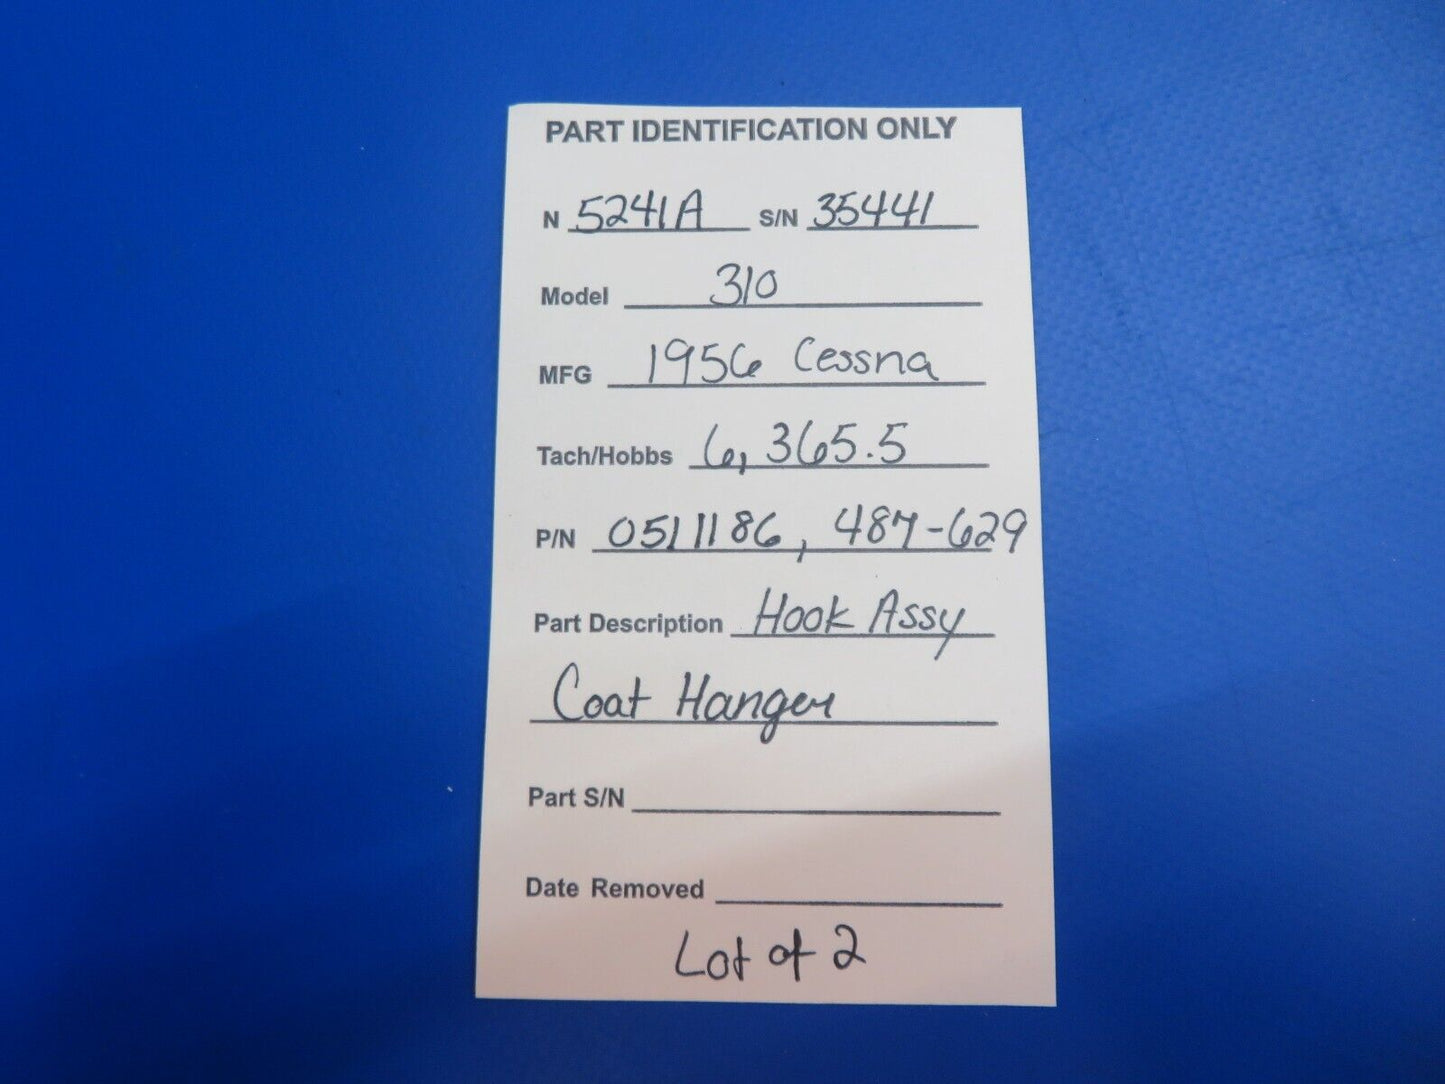 PART IDENTIFICATION ONLY
N 5241A S/N 35441
Model 310
MFG 1956 Cessna
Tach/Hobbs 6,365.5
P/N 0511186, 487-629
Part Description Hook Assy
Coat Hanger
Part S/N
Date Removed
Lot of 2